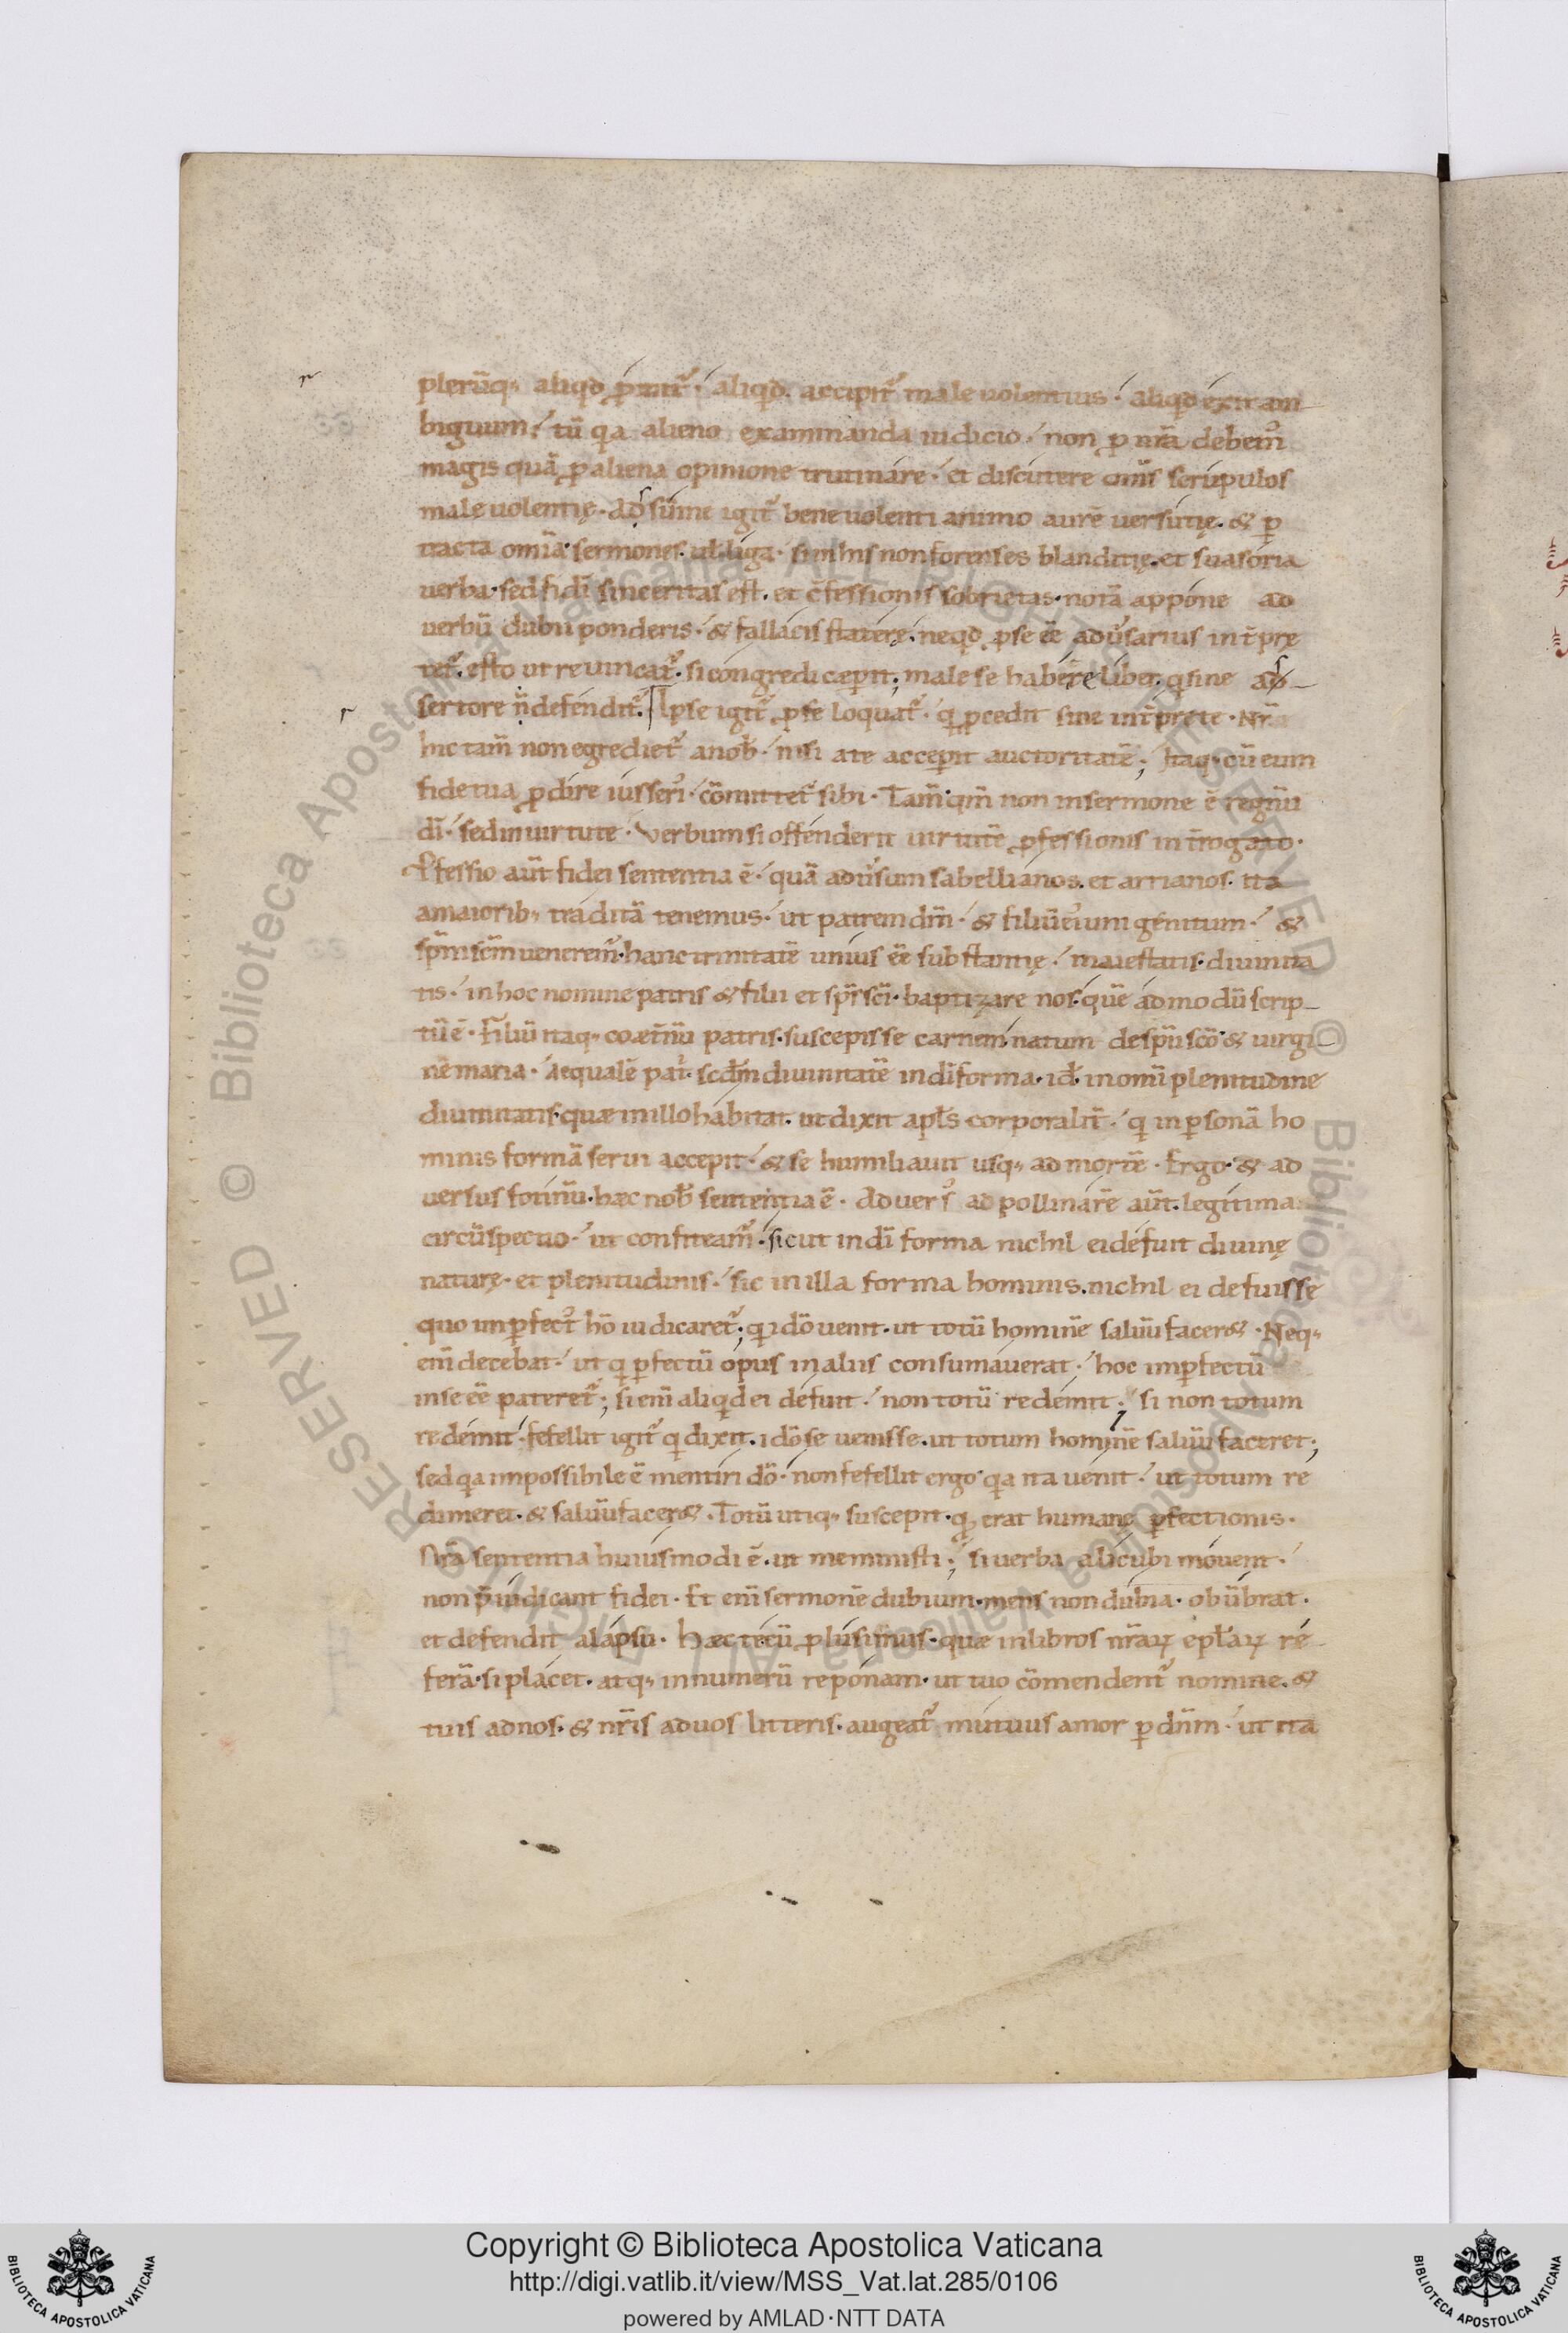 plerūq; aliqd ꝓmit᷑. aliqd accipit᷑ male uolentius. aliqd exit am
biguum. tū qa alieno examinanda iudicio. non ꝓ nr̄a debem᷒
magis quā ꝓ aliena opinione trutinare. et discutere om̄s scrupulos
male uolentię. Adsume igit᷑ beneuolenti animo aurē uersutię. & ꝑ
tracta om̄ia sermones uelliga. si in his non forenses blanditię. et suasoria
uerba. sed fidī sinceritas est. et c̄fessionis sobrietas. notā appone ad
uerbū dubii ponderis. & fallacis staterę. neqd ꝓ se ēē adu͛sarius int̄prę
tet᷑. esto ut reuincat᷑. si congredi cæperit; male se habere liber. q sine ad
sertore n̄ defendit᷑. Ipse igit᷑ ꝓ se loquat᷑. q ꝓcedit sine int̄prete. Nr̄a
hic tam̄ non egrediet᷑ anob̄. nisi a te acceperit auctoritatē; Itaq; cū eum
fide tua ꝓdire iusseri᷒. cōmittet᷑ sibi. Tam̄ qm̄ non in sermone ē regnū
dī. sed in uirtute. Verbum si offenderit uirtutē ꝓfessionis int̄rogato.
Ꝓfessio aut̄ fidei sententia ē. quā adu͛sum sabellianos. et arrianos. ita
a maiorib; traditā tenemus. ut patrem dm̄. & filiū ei᷒ unigenitum. &
spm̄ scm̄ uenerem᷒. hanc trinitatē unius ēē substantię. maiestatis. diuinita
tis. in hoc nomine patris & filii et spr̄ scī. baptizare nos. quē ad modū scrip
tū ē. Filiū itaq; coæt̄nū patris. suscepisse carnem natum de spū scō & uirgi
nē maria. Aequalē pat. scdm̄ diuinitatē in dī forma. id. in omi plenitudine
diuinitatis. quæ in illo habitat. ut dixit apl̄s corporalit̄. q in ꝑsonā ho
minis formā serui accepit. & se humiliauit usq; ad mortē. Ergo & ad
uersus fotinū. hæc nob̄ sententia ē. Aduers᷒ adpollinarē aut̄. legitima
circūspectio. ut confiteam᷒. sicut in dī forma nichil ei defuit diuinę
naturę. et plenitudinis. sic in illa forma hominis. nichil ei defuisse
quo imꝑfect᷒ hō iudicaret᷑; q idō uenit. ut totū hominē saluū facer&. Neq;
eni decebat. ut q ꝑfectū opus in aliis consumauerat. hoc imꝑfectū
in se ēē pateret᷑; si eni aliqd ei defuit. non totū redemit. si non totum
redemit. fefellit igit᷑ q dixit. idō se uenisse. ut totum hominē saluū faceret;
sed qa impossibile ē mentiri dō. non fefellit ergo qa ita uenit. ut totum re
dimeret. & saluū facer&. Totū utiq; suscepit. qd erat humanę ꝑfectionis.
Nr̄a sententia huiusmodi ē. ut meministi; si uerba alicubi mouent.
non p̄iudicant fidei. Et eni sermonē dubium. mens non dubia. obūbrat.
et defendit a lapsu. Hæc tecū ꝓlusimus. quæ in libros nr̄aꝝ epl̄aꝝ re
ferā. si placet. atq; in numerū reponam. ut tuo cōmendent᷑ nomine. &
tuis ad nos. & nr̄is ad uos litteris. augeat᷑ mutuus amor ꝑ dnm̄. ut ita
© Biblioteca Apostolica Vaticana ALL RIGHTS RESERVED
Copyright © Biblioteca Apostolica Vaticana
http://digi.vatlib.it/view/MSS_Vat.lat.285/0106
powered by AMLAD·NTT DATA
BIBLIOTECA APOSTOLICA VATICANA
BIBLIOTECA APOSTOLICA VATICANA